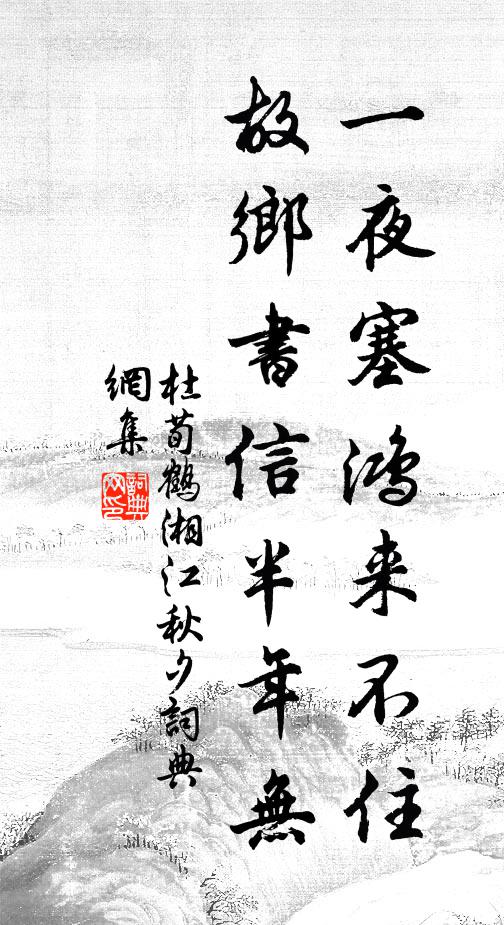 一夜塞鸿来不住
故鄉書信半年無
杜荀鶴湘江秋夕詞典
網集
詞典
网印